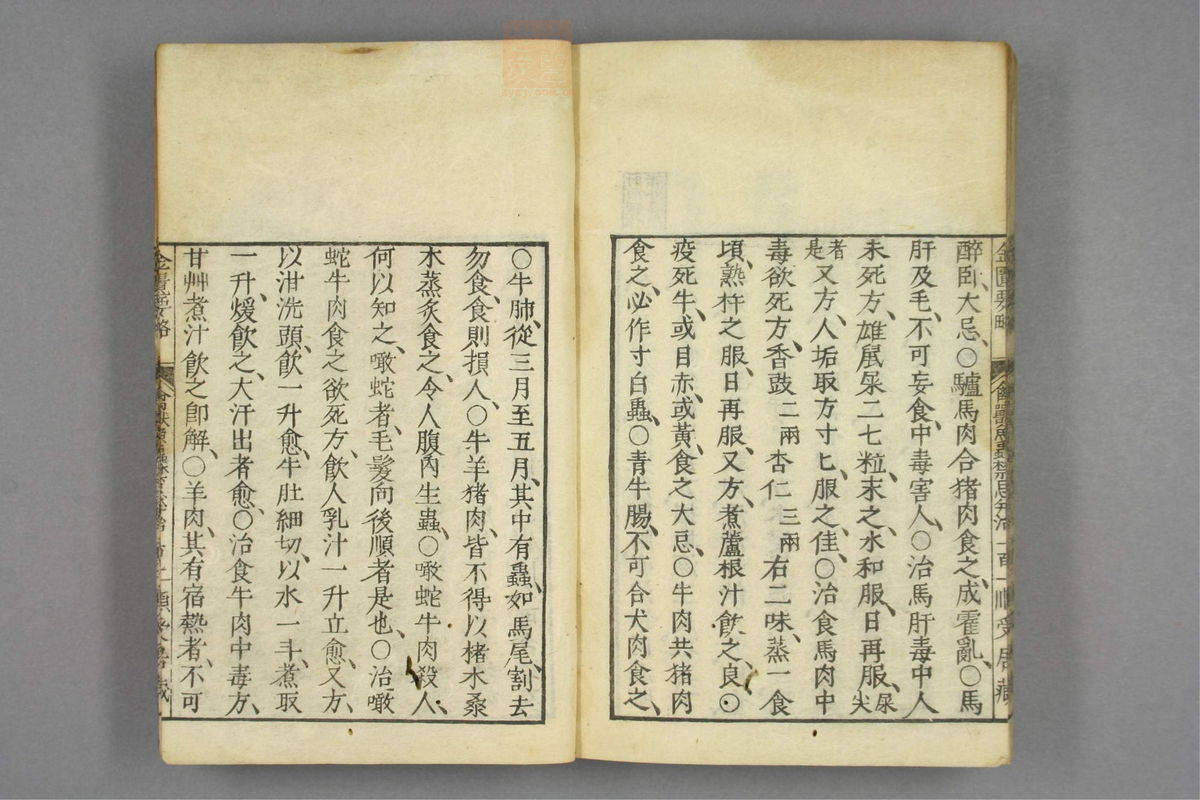 醉臥、大忌、○驢馬肉合猪肉食之、成霍亂、○馬
肝及毛、不可妄食、中毒害人、○治馬肝毒中人
未死方、雄鼠屎二七粒、末之、水和服、日再服、屎尖
者是又方、人垢取方寸匕、服之佳、○治食馬肉中
毒欲死方、香豉二兩杏仁三兩右二味、蒸一食
頃、熟杵之服、日再服、又方、煮蘆根汁飲之良、○
疫死牛、或目赤、或黃、食之大忌、○牛肉共猪肉
食之、必作寸白蟲、○青牛腸、不可合犬肉食之、
○牛肺、從三月至五月、其中有蟲、如馬尾、割去
勿食、食則損人、○牛羊猪肉、皆不得以楮木桑
木蒸炙食之、令人腹內生蟲、○噉蛇牛肉殺人、
何以知之、噉蛇者、毛髮向後順者是也、○治噉
蛇牛肉食之欲死方、飲人乳汁一升立愈、又方、
以泔洗頭、飲一升愈、牛肚細切、以水一斗、煮取
一升、煖飲之、大汗出者愈、○治食牛肉中毒方、
甘艸煮汁飲之卽解、○羊肉、其有宿熱者、不可